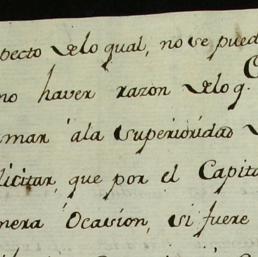 specto delo qual, no se pued
no haver razon delo q.
mar â la Superioridad
licitar, que por el Capita
mera Ocasion, si fuere